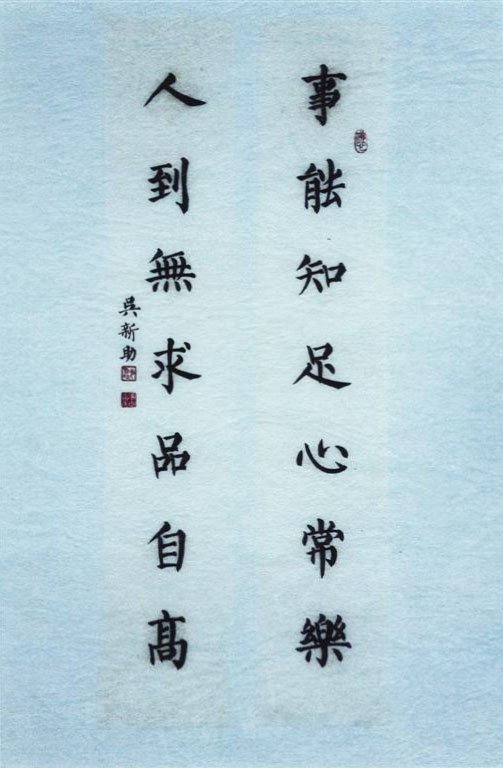 事能知足心常樂
人到無求品自高
吳新助